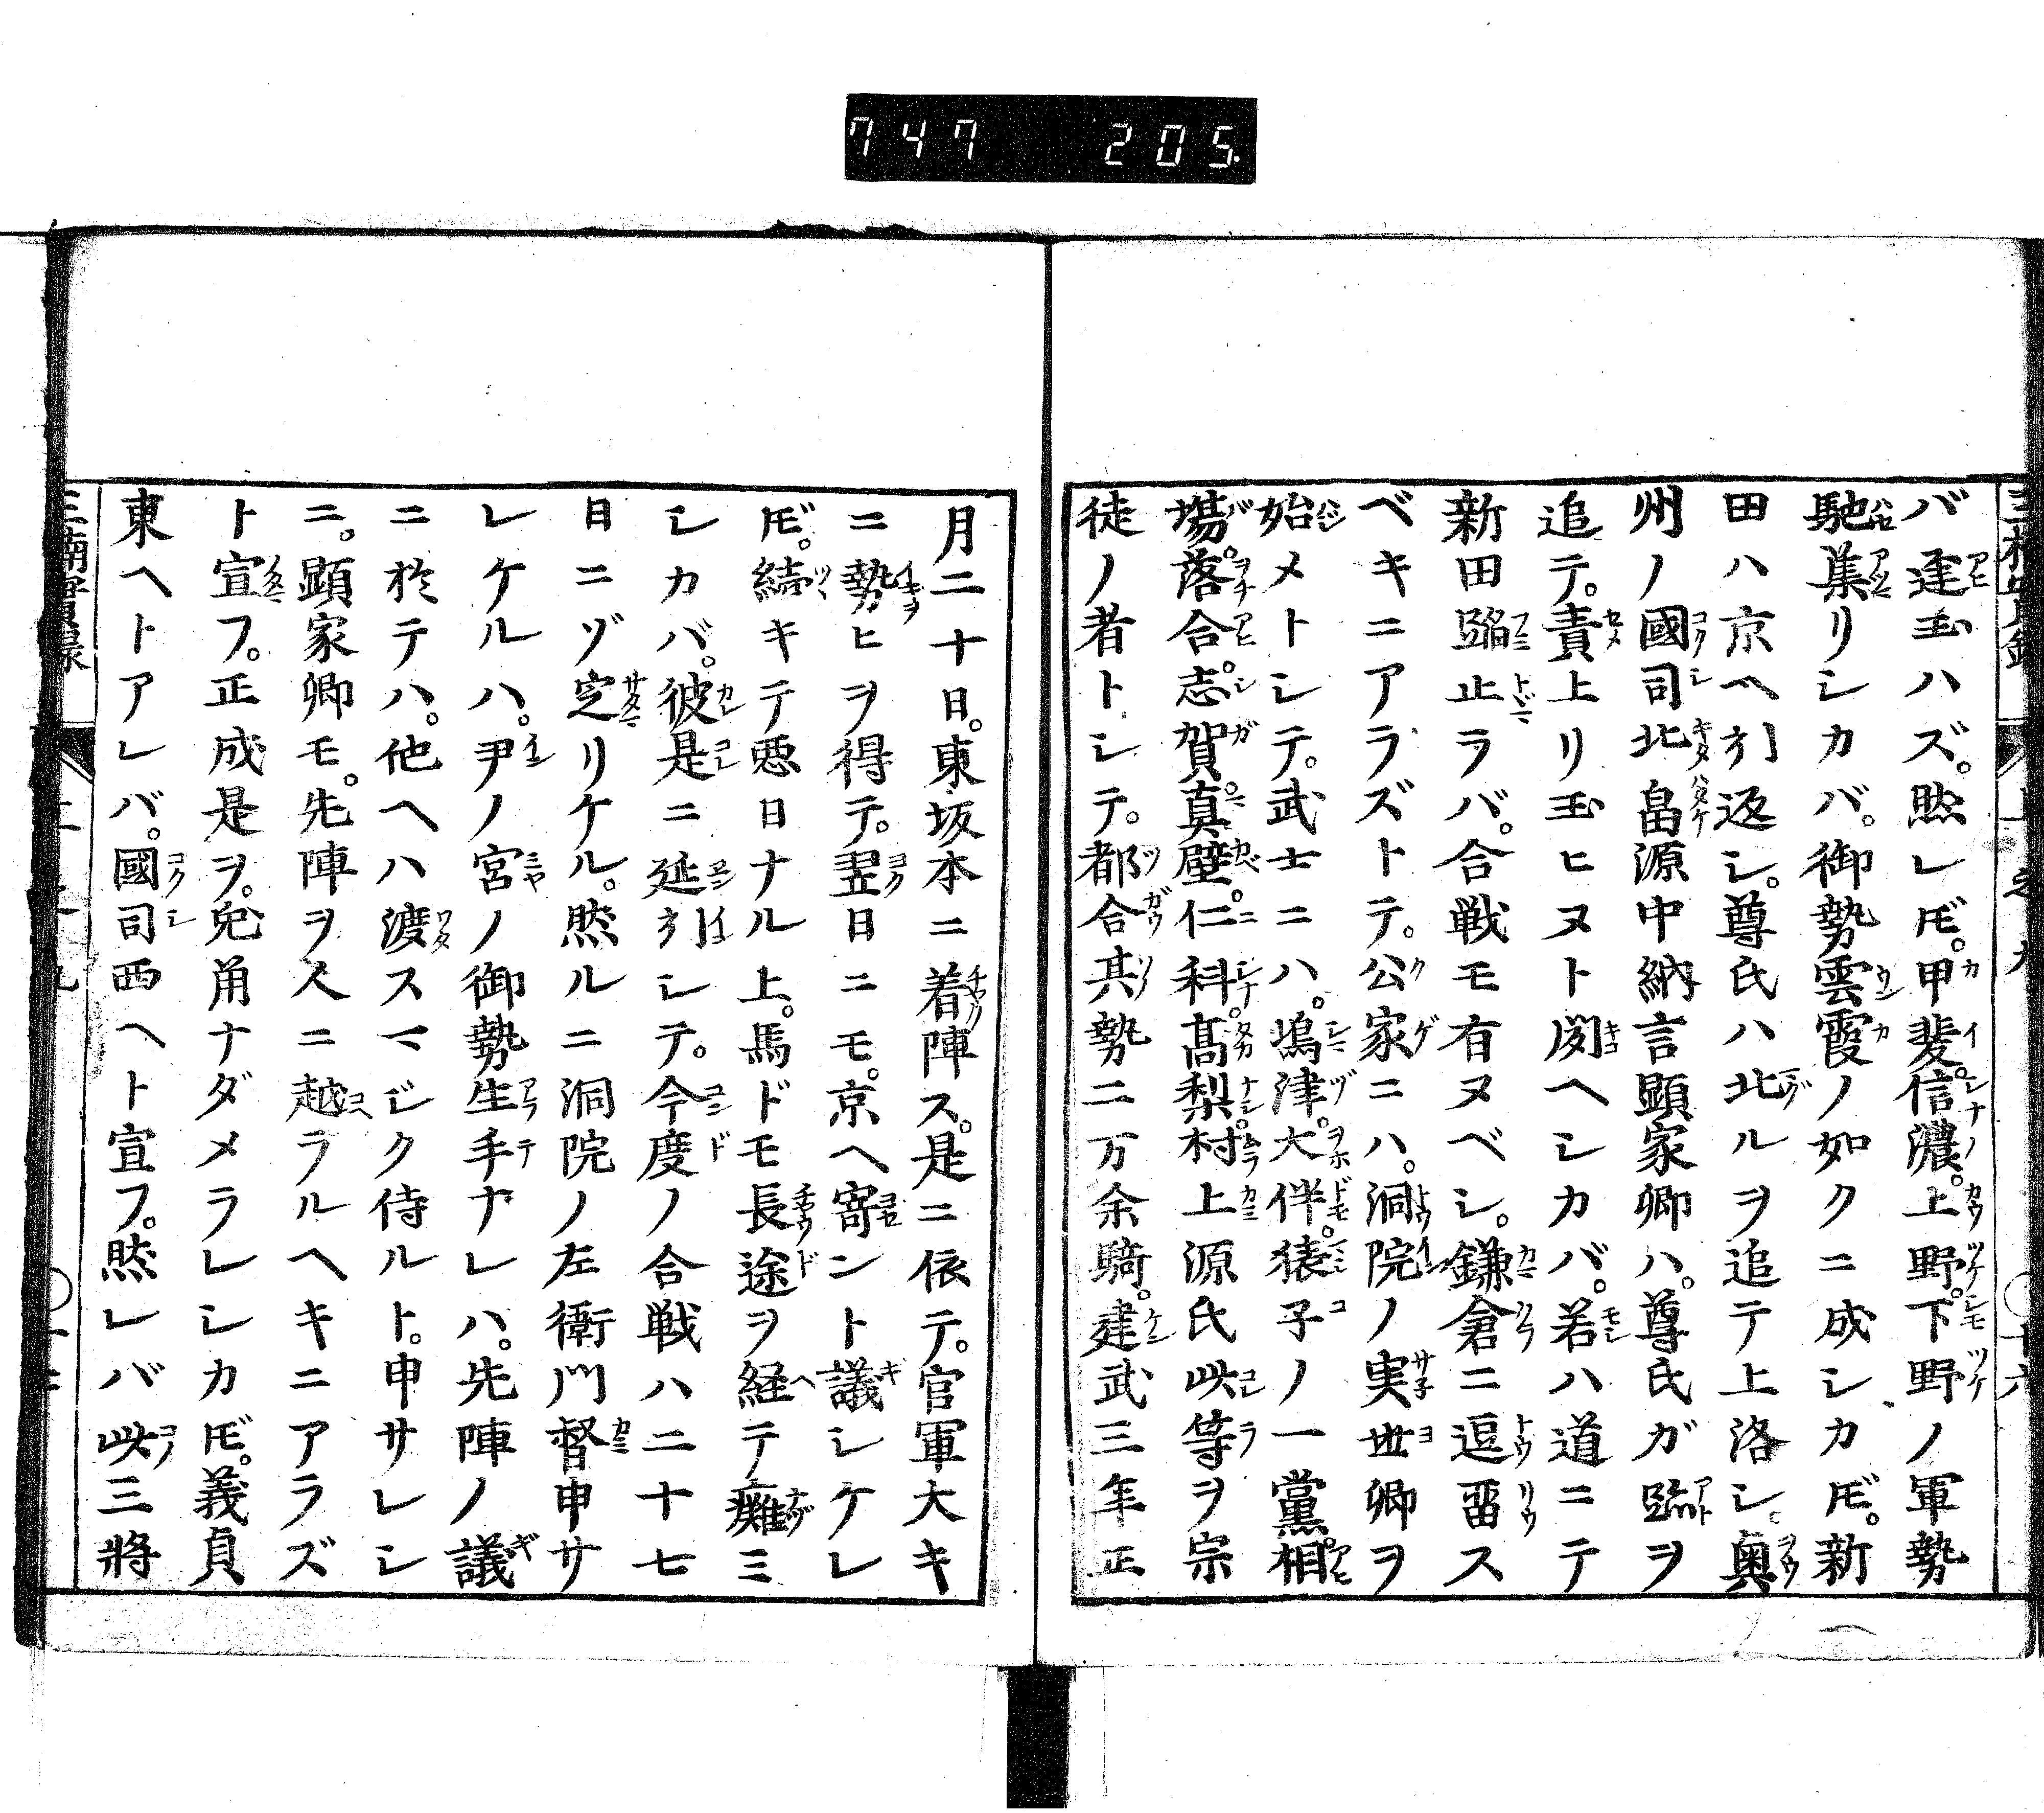 747 205.
バ逢玉ハズ。然レ𪜈。甲斐。信濃。上野。下野ノ軍勢
馳集リシカバ。御勢雲霞ノ如クニ成シカ𪜈。新
田ハ京ヘ引返シ。尊氏ハ北ルヲ追テ上洛シ。奥
州ノ國司北畠源中納言顕家卿ハ。尊氏ガ跡ヲ
追テ。責上リ玉ヒヌト聞ヘシカバ。若ハ道ニテ
新田蹈止ラバ。合戦モ有ヌベシ。鎌倉ニ逗留ス
ベキニアラズトテ。公家ニハ。洞院ノ実世卿ヲ
始メトシテ。武士ニハ。嶋津。大伴。猿子ノ一黨。相
場。落合。志賀。真壁。仁科。髙梨。村上源氏此等ヲ宗
徒ノ者トシテ。都合其勢二万余騎。建武三年正
月二十日。東坂本ニ着陣ス。是ニ依テ。官軍大キ
ニ勢ヒヲ得テ。翌日ニモ。京ヘ寄ント議シケレ
𪜈。続キテ悪日ナル上。馬ドモ長途ヲ経テ難ミ
シカバ。彼是ニ延引シテ。今度ノ合戦ハ二十七
日ニゾ定リケル。然ルニ洞院ノ左衛門督申サ
レケルハ。尹ノ宮ノ御勢生手ナレハ。先陣ノ議
ニ於テハ。他ヘハ渡スマジク侍ルト。申サレシ
ニ。顕家卿モ。先陣ヲ人ニ越ラルヘキニアラズ
ト宣フ。正成是ヲ。兎角ナダメラレシカ𪜈。義貞
東ヘトアレバ。國司西ヘト宣フ。然レバ此三将